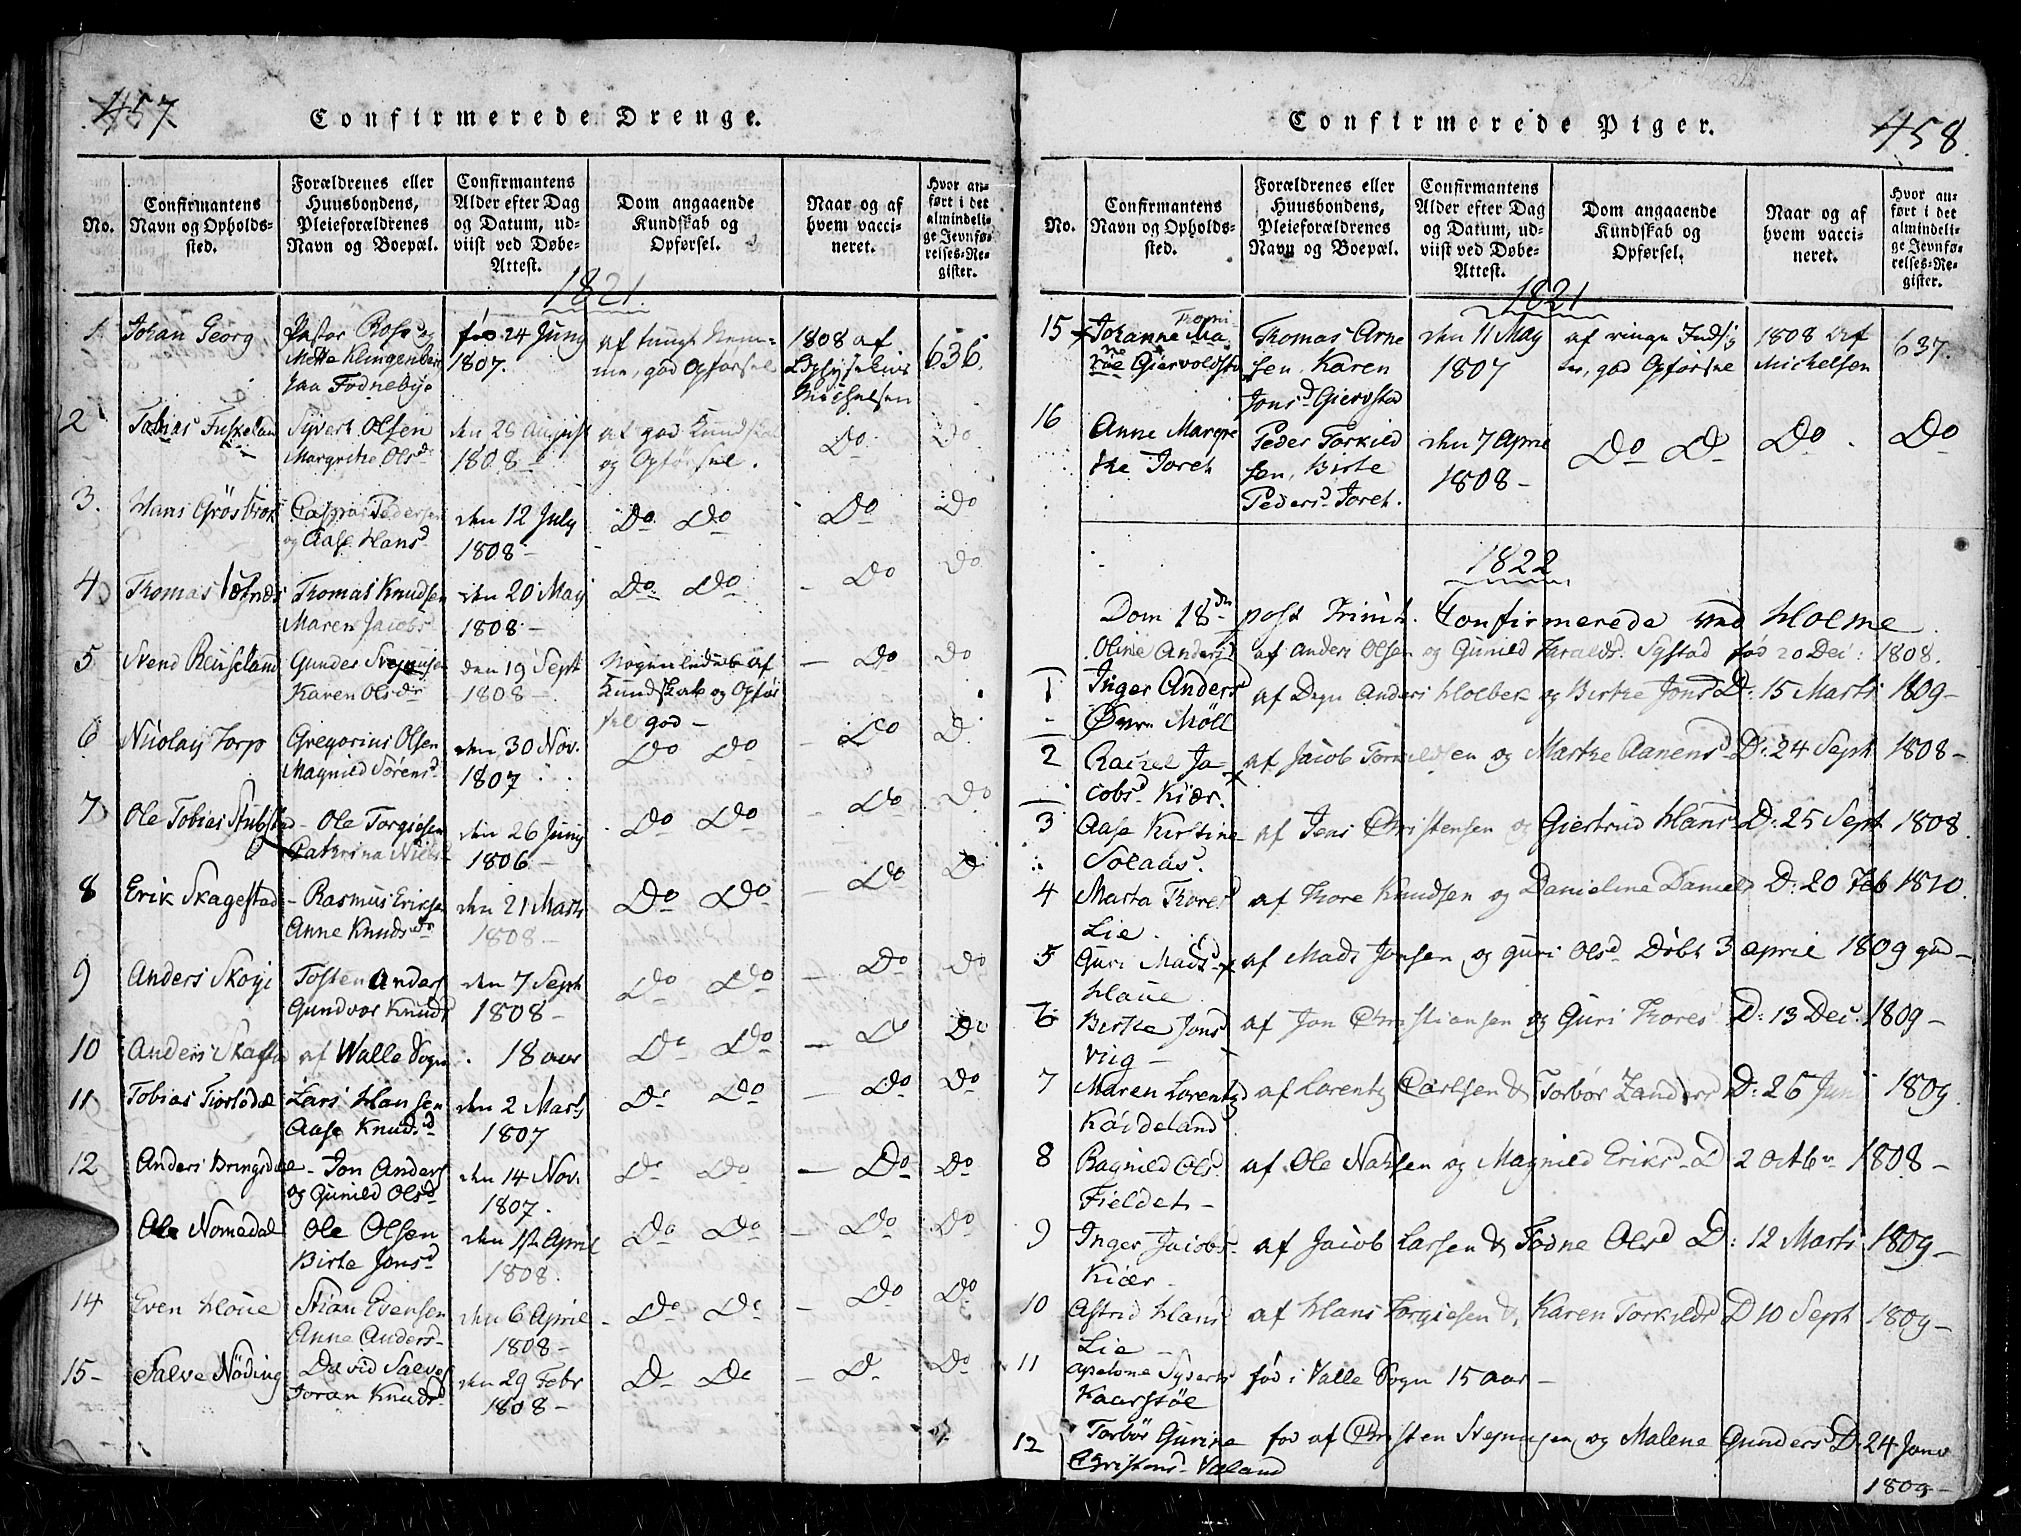 457
Confirmerede Drenge.
No.
Confirmantens Navn og Opholdssted.
Forældrenes eller Huusbondens, Pleieforældrenes Navn og Boepæl.
Confirmantens Alder efter Dag og Datum, udviist ved Døbe-Attest.
Dom angaaende Kundskab og Opførsel.
Naar og af hvem vaccineret.
Hvor anført i det almindelige Jevnførelses-Register.
1821.
1 Johan Georg Pastor fød 24 Juny af god Opførsel 1808 af 636.
Mette Klingenberg 1807.
paa Fodnebye Michelsen
2 Tobias Syvert Olsen den 28 August af god Kundskab Do Do
Margrethe Olsd 1808 og Opførsel.
3. Hans Pedersen den 12 July Do Do Do Do
og Aase Hansd 1808-
4 Thomas Thomas Knudsen den 20 May Do Do Do Do
Maren Jacobs 1808-
5 Svend Reiseland Gunder den 19 Sept af Do Do
Karen Olsdr 1808- Kundskab og Opfør
sel god-
6 Nicolay Torp Gregorius Olsen den 30 Nov. Do Do Do D
Magnild Sørensd 1807
7 Ole Tobias Stubstad Ole Torgiesen den 26 Juny Do Do Do Do
Cathrina Nielsd 1806-
8 Erik Skagestad Rasmus Eriksen den 21 Marts Do Do Do D
Anne Knudsdr 1808-
9 Anders Skoye Tosten Anders den 7 Sept Do Do Do Do
Gundvor Knudsd 1808-
10 Anders af Walle Sogn 18 aar Do Do Do Do
11 Tobias Lars Hansen den 2 Marts Do Do Do Do
Aase Knudsd 1807
12 Anders Bringsdal Jon Anders den 14 Nov. Do Do Do Do
og Gunild Olsd 1807.
Ole Nomedal Ole Olsen den 1st April Do Do Do Do
Birte Jonsd 1808.
14 Even Houe Stian Evensen den 6 April Do Do Do Do
Anne Anders 1808-
15- Salve Nøding David Salves den 29 Febr D Do D Do
Joran Knudsd 1808-
458.
Confirmerede Piger.
No.
Confirmantens Navn og Opholdssted.
Forældrenes eller Huusbondens, Pleieforældrenes Navn og Boepæl.
Confirmantens Alder efter Dag og Datum, udviist ved Døbe-Attest.
Dom angaaende Kundskab og Opførsel.
Naar og af hvem vaccineret.
Hvor anført i det almindelige Jevnførelses-Register.
1821
15 Johanne Ma Thomas Arne den 11 May af ringe Indsig 1808 af 637.
rie Giervoldstad sen, Karen 1807 god Opførsel Michelsen
Jonsd
16 Anne Margre Peder Torkild den 7 April Do D Do Do
the Joreh sen, Birte 1808-
Pedersd Joreh.
1822
Dom 18 post Trinit. Confirmerede ved Holme
Oline Andersd af Anders Olsen og Gunild Systad fød 20 Dec: 1808.
1 Inger Anders af Anders Holbek og Birthe Jonsd D: 15 Marts 1809-
Møll
2 Rachel Ja af Jacob Torkildsen og Marthe Aanensd D: 24 Sept 1808-
cobsd Kiær.
3 Aase Kirstine af Jens Christensen og Giertrud Hans D: 25 Sept 1808
Solaas
4 Marta Thores af Thore Knudsen og Danieline Daniels D: 20 Feb 1810.
Lie.
5 Guri Mads af Mads Jonsen og guri Olsd Døbt 3 april 1809
Houe
6 Birthe Jons af Jon Christiansen og Guri Thores D: 13 Dec. 1809-
Viig-
7 Maren Lorentzd af Lorentz Carlsen & Torbør D: 26 Juni 1809.
Kaideland
8 Ragnild Olsd af Ole og Magnild Eriksd D 2 Octbr 1808-
Fieldet-
9 Inger Jacobs af Jacob Larsen & Todne Olsd D: 12 Marts 1809-
Kiær.
10 Astrid Hansd af Hans Torgiesen & Karen Torkildsd D 10 Sept 1809-
Lie-
11 Apelone Syverts fød i Valle Sogn 15 aar-
Kaarstøe
12 Torbør Gurine fød af Christen og Malene Gundersd D: 24 Janv
Christens
1809-